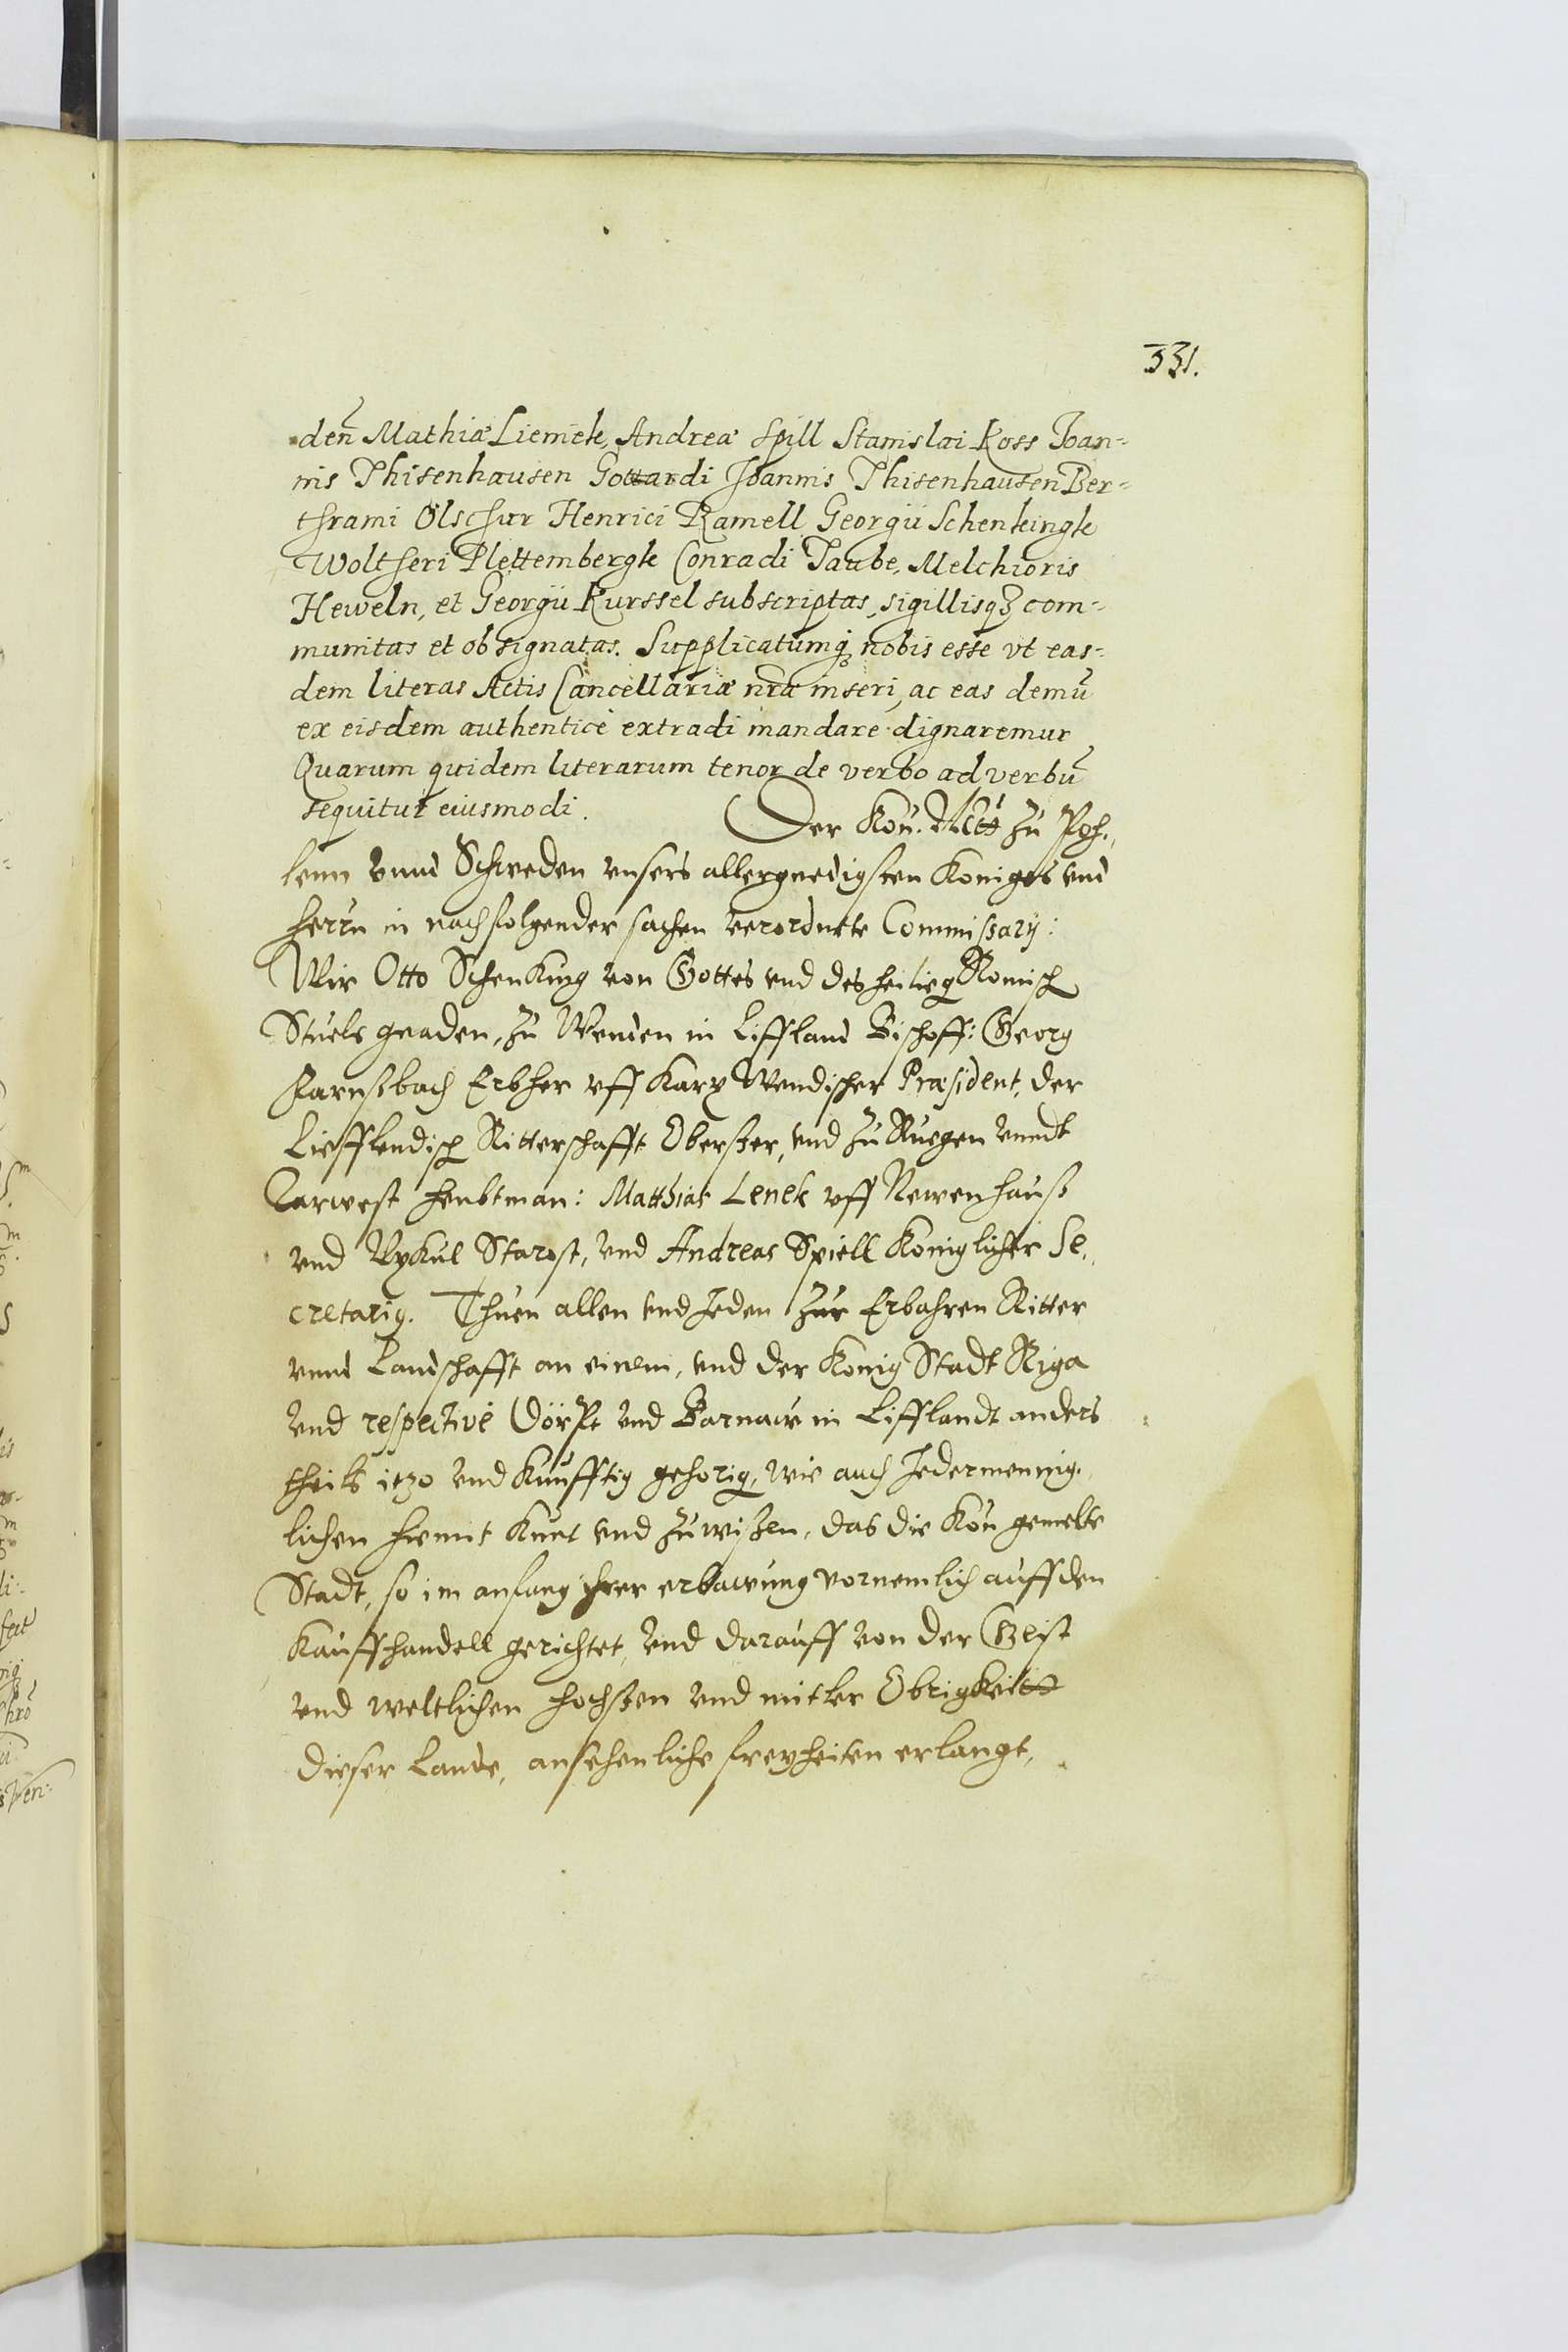 331.
den̄ Mathiæ Liemek, Andreæ Spill Stanislai Koss Joan=
nis Thisenhausen Gottardi Joannis Thisenhausen Ber=
thrami Olschur Henrici Ramell Georgii Schenkingk
Woltheri Plettembergk Conradi Taube, Melchioris
Heweln, et Georgii Kurssel subscriptas, sigillisq3 com=
munitas et obsignatas. Supplicatumq3 nobis esse vt eas=
dem literas Actis Cancellariæ nr̄æ inseri, ac eas demū
ex eisdem authenticè extradi mandare dignaremur
Quarum quidem literarum tenor de verbo ad verbū
sequitur eiusmodi. Der Kön. Mtt zu Poh,,
lenn vnnd Schweden vnsers allergnedigsten Koniges vnd
Herrn in nachfolgender sachen verordnete Commissary:
Wir Otto Schenking von Gottes vnd des heilieg Romisch
Stuels gnaden, zu Wenden in Liffland Bischoff: Georg
Farnßbach Erbher vff Karx Wendischer Præsident, der
Liefflendisch Ritterschafft Oberster, vnd zu Ruegen vnndt
Tarwest Heubtman: Matthias Lenek vff Newenhauß
vnd Vxkul Starost, vnd Andreas Spiell Königlicher Se,,
cretarig. Thuen allen vnd Jeden zur Erbahren Ritter
vnnd Landschafft an einem, vnd der König Stadt Riga
vnd respectivè Dörpt vnd Parnaw in Lifflandt anders
theils itzo vnd Kunfftig gehorig, wie auch Jedermennig,,
lichen hiemit Kunt vnd zuwißen, das die Kön gemelte
Stadt, so im anfang ihrer erbawung vornemlich auff den
Kauffhandell gerichtet, vnd darauff von der Geist
vnd weltlichen hochsten vnd mitler Obrigkeitt
dieser Lande, ansehenliche freyheiten erlangt,